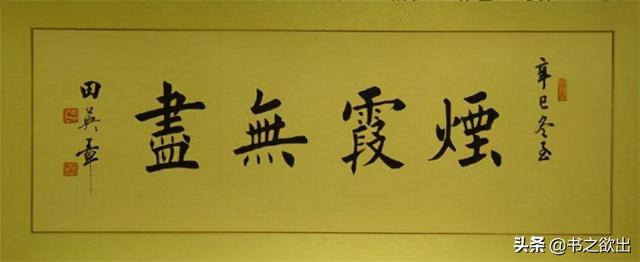 辛巳冬玉
煙霞無盡
田英章
头条@书之欲出